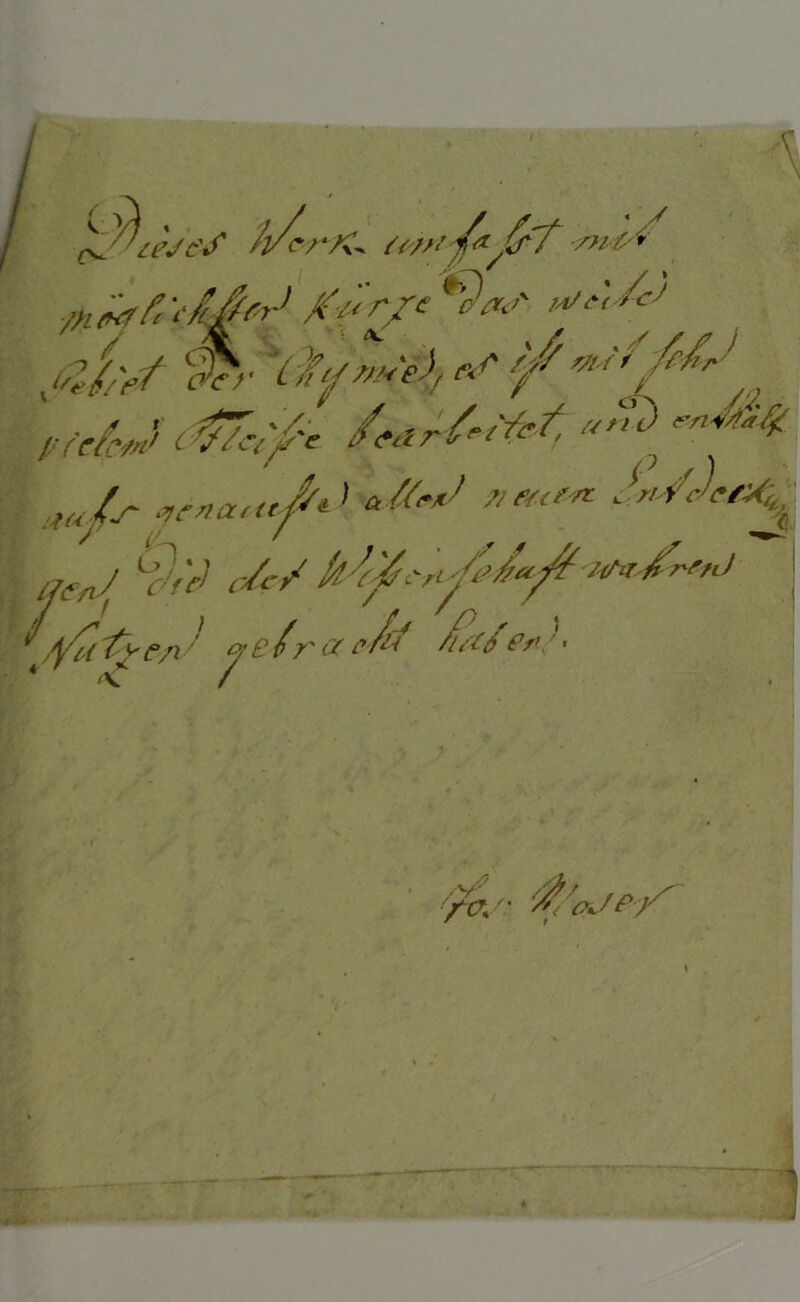 Dieses Werk umfaßt mit
möglichster Kürze das weite
Gebiet der Chymie, es ist mit sehr
vielem Fleiße bearbeitet, und enthält
aufs genaueste allen neuen Entdeckun
gen die der Wissenschaft wahren
Nutzen gebracht haben.
Jos: Moser